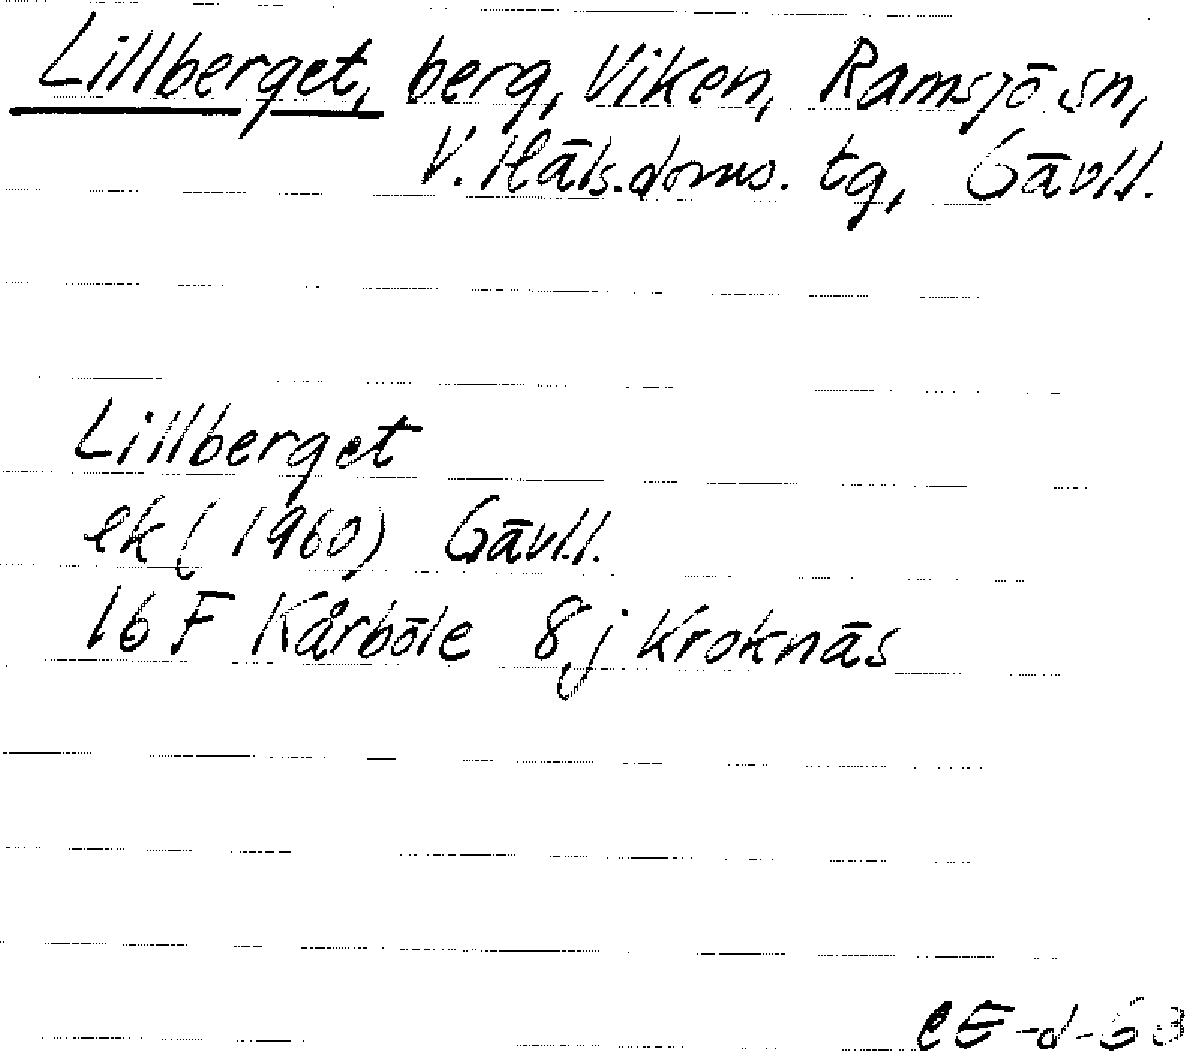 Lillberget, berg, Viken, Ramsjö sn,
V. Häls. doms. tg, Gävl.l.
Lillberget
ek (1960) Gävl.l.
16 F Kårböle 8j Kroknäs